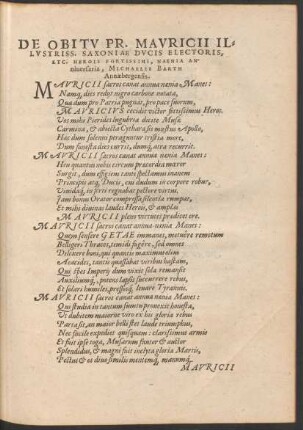 DE OBITV PR. MAVRICII IL-
LVSTRISS. SAXONIAE DVCIS ELECTORIS,
ETC. HEROIS FORTISSIMI, NAENIA AN-
niversaria, MICHAELIS BARTH
Annæbergensis.
MAVRICII sacros canat annua nænia Manes:
Namq; dies redit nigro carbone notata,
Qua dum pro Patria pugnat, pro pace suorum,
MAVRICIVS cecidit victor fortissimus Heros.
Vos mihi Pierides lugubria dicite Musæ
Carmina, & abiecta Cythara sis mæstus Apollo,
Hæc dum solenni peraguntur tristia more,
Dum funesta dies cursu, damnq; atra recurrit.
MAVRICII sacros canat annua nænia Manes:
Heu quantus nobis circum præcordia mœror
Surgit, dum effigiem tanti spectamus inanem
Principis atq; Ducis, cui dudum in corpore robur,
Vividaq; in forti regnabat pectore virtus.
Iam bonus Orator compressa silentia rumpat,
Et mihi divinas laudes Herois, & amplas
MAVRICII plena virtutes prædicet ore.
MAVRICII sacros canat annua nænia Manes:
Quem sensere GETAE immanes, metuitq; remotum
Belliger Thraces, timidi fugêre, sed omnes
Dilexere boni, qui quantis maximus olim
Aeacides, tantis quassabat viribus hostem,
Qui spes Imperij dum vixit sola remansit
Auxiliumq;, potens lapsis succurrere rebus,
Et subitò humiles, pressosq; levare Tyrannis.
MAVRICII sacros canat annua nænia Manes:
Qui studia in tantum summo provexit honesta,
Vt dubitem maiorne viro ex his gloria rebus
Parta sit, an maior belli stet laude triumphus,
Nec facilè expediet quisquam: clarissimus armis
Et fuit ipse toga, Musarum fautor & auctor
Splendidus, & magni fuit inclyta gloria Martis,
Pectus & os divo similis mentemq́; manumq́;
MAVRICII